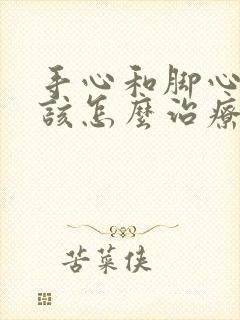 手心和脚心
該怎麼治療
苦菜侠